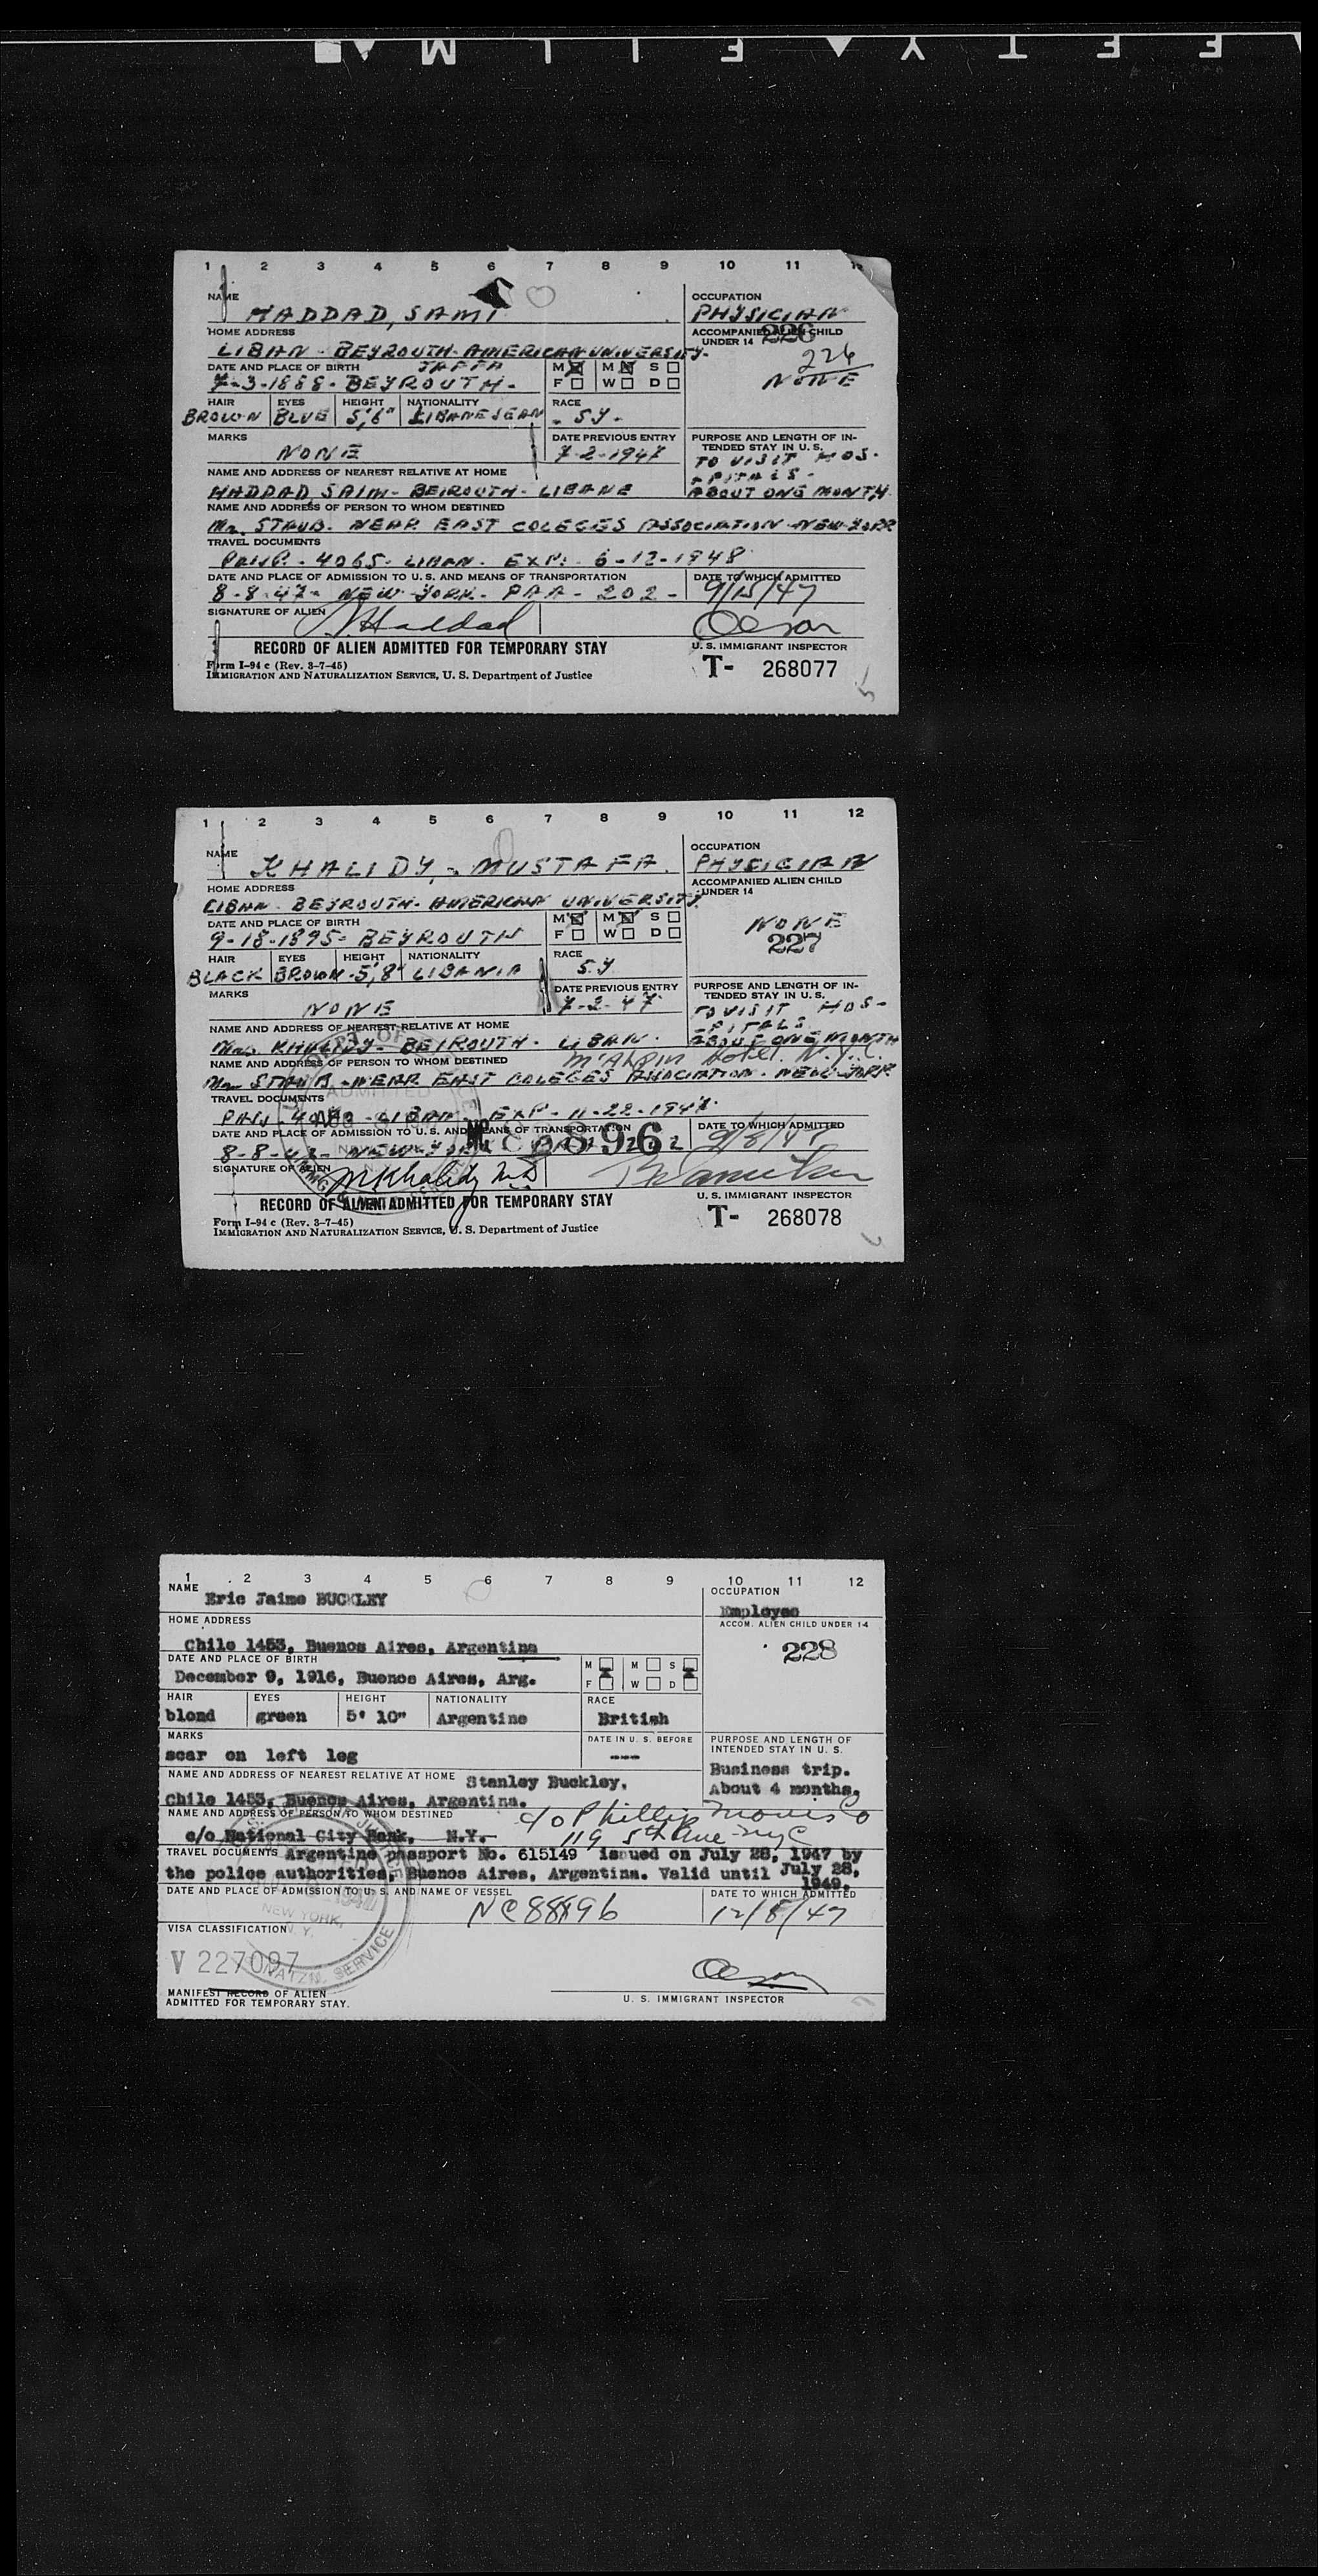 SAFETY FILM
1 2 3 4 5 6 7 8 9 10 11
NAME HADDAD, SAMI
OCCUPATION PHYSICIAN
HOME ADDRESS
LIBAN - BEYROUTH - AMERICAN UNIVERSITY.
ACCOMPANIED ALIEN CHILD UNDER 14
226
226
NONE
DATE AND PLACE OF BIRTH JAFFA
7-3-1888 - BEYROUTH -
M M S
F W D
HAIR EYES HEIGHT NATIONALITY RACE
BROWN BLUE 5'6" LIBANESEAN - SY -
MARKS
NONE
DATE PREVIOUS ENTRY
7-2-1947
PURPOSE AND LENGTH OF INTENDED STAY IN U. S.
TO VISIT HOS-
-PITALS -
ABOUT ONE MONTH
NAME AND ADDRESS OF NEAREST RELATIVE AT HOME
HADDAD, SAIM - BEIROUTH - LIBANE
NAME AND ADDRESS OF PERSON TO WHOM DESTINED
Mr. STAUB - NEAR EAST COLEGES ASSOCIATION - NEW-YORK
TRAVEL DOCUMENTS
4065 - LIBAN - EXP: - 6-12-1948
DATE AND PLACE OF ADMISSION TO U. S. AND MEANS OF TRANSPORTATION
8-8-47 - NEW-YORK - PAA - 202 -
DATE TO WHICH ADMITTED
9/15/47
SIGNATURE OF ALIEN Haddad
Olson
U. S. IMMIGRANT INSPECTOR
RECORD OF ALIEN ADMITTED FOR TEMPORARY STAY
Form I-94 c (Rev. 3-7-45)
IMMIGRATION AND NATURALIZATION SERVICE, U. S. Department of Justice
T- 268077
1 2 3 4 5 6 7 8 9 10 11 12
NAME KHALIDY, - MUSTAFA
OCCUPATION PHYSICIAN
HOME ADDRESS
LIBAN - BEYROUTH - AMERICAN UNIVERSITY
ACCOMPANIED ALIEN CHILD UNDER 14
NONE
227
DATE AND PLACE OF BIRTH
9-18-1895 - BEYROUTH
M M S
F W D
HAIR EYES HEIGHT NATIONALITY RACE
BLACK BROWN - 5'8" LIBANIA S.Y.
MARKS
NONE
DATE PREVIOUS ENTRY
7-2-47
PURPOSE AND LENGTH OF INTENDED STAY IN U. S.
TO VISIT HOS-
-PITALS
ABOUT ONE MONTH
NAME AND ADDRESS OF NEAREST RELATIVE AT HOME
Mrs. KHALIDY - BEIROUTH - LIBAN.
NAME AND ADDRESS OF PERSON TO WHOM DESTINED McAlpin Hotel, N.Y.C.
Mr STAUB - NEAR EAST COLEGES ASSOCIATION - NEW-YORK
TRAVEL DOCUMENTS
LIBAN - EXP - 11-22-1947
DATE AND PLACE OF ADMISSION TO U. S. AND MEANS OF TRANSPORTATION
8-8-47 - NEW-YORK
DATE TO WHICH ADMITTED
9/8/47
SIGNATURE OF ALIEN M Khalidy M.D.
U. S. IMMIGRANT INSPECTOR
RECORD OF ALIEN ADMITTED FOR TEMPORARY STAY
Form I-94 c (Rev. 3-7-45)
IMMIGRATION AND NATURALIZATION SERVICE, U. S. Department of Justice
T- 268078
1 2 3 4 5 6 7 8 9 10 11 12
NAME Eric Jaime BUCKLEY
OCCUPATION
Employee
HOME ADDRESS
Chile 1453, Buenos Aires, Argentina
ACCOM. ALIEN CHILD UNDER 14
228
DATE AND PLACE OF BIRTH
December 9, 1916, Buenos Aires, Arg.
M M S
F W D
HAIR EYES HEIGHT NATIONALITY RACE
blond green 5' 10" Argentine British
MARKS
scar on left leg
DATE IN U. S. BEFORE
---
PURPOSE AND LENGTH OF INTENDED STAY IN U. S.
Business trip.
About 4 months.
NAME AND ADDRESS OF NEAREST RELATIVE AT HOME Stanley Buckley,
Chile 1453, Buenos Aires, Argentina.
NAME AND ADDRESS OF PERSON TO WHOM DESTINED c/o Phillip Morris Co
c/o National City Bank, N.Y. 119 5th Ave NYC
TRAVEL DOCUMENTS Argentine passport No. 615149 issued on July 28, 1947 by
the police authorities, Buenos Aires, Argentina. Valid until July 28,
1949.
DATE AND PLACE OF ADMISSION TO U. S. AND NAME OF VESSEL
NC88896
DATE TO WHICH ADMITTED
12/8/47
VISA CLASSIFICATION
V 227097
NEW YORK, N. Y.
NATZN. SERVICE
Olson
U. S. IMMIGRANT INSPECTOR
MANIFEST RECORD OF ALIEN
ADMITTED FOR TEMPORARY STAY.